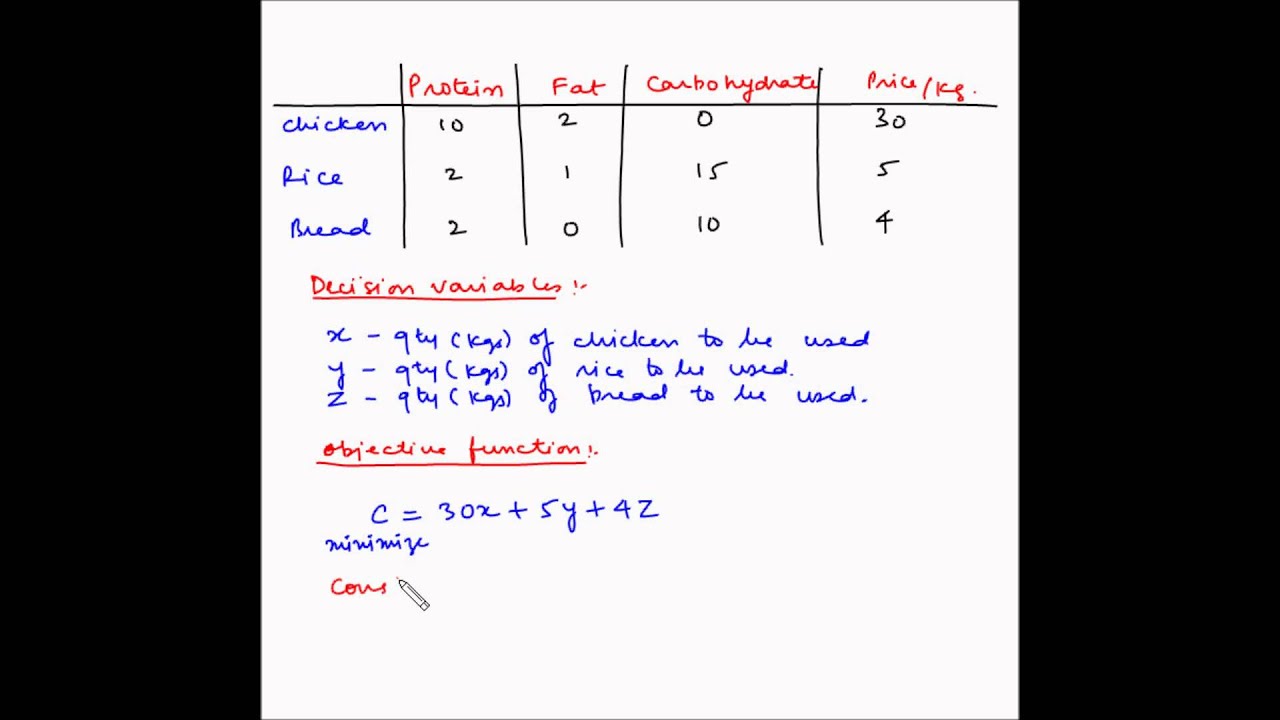 Protein Fat Carbohydrate Price/Kg.
Chicken 10 2 0 30
Rice 2 1 15 5
Bread 2 0 10 4
Decision variables :-
x - qty (kgs) of chicken to be used
y - qty (kgs) of rice to be used.
Z - qty (kgs) of bread to be used.
objective function :-
C = 30x + 5y + 4Z
minimize
Cons